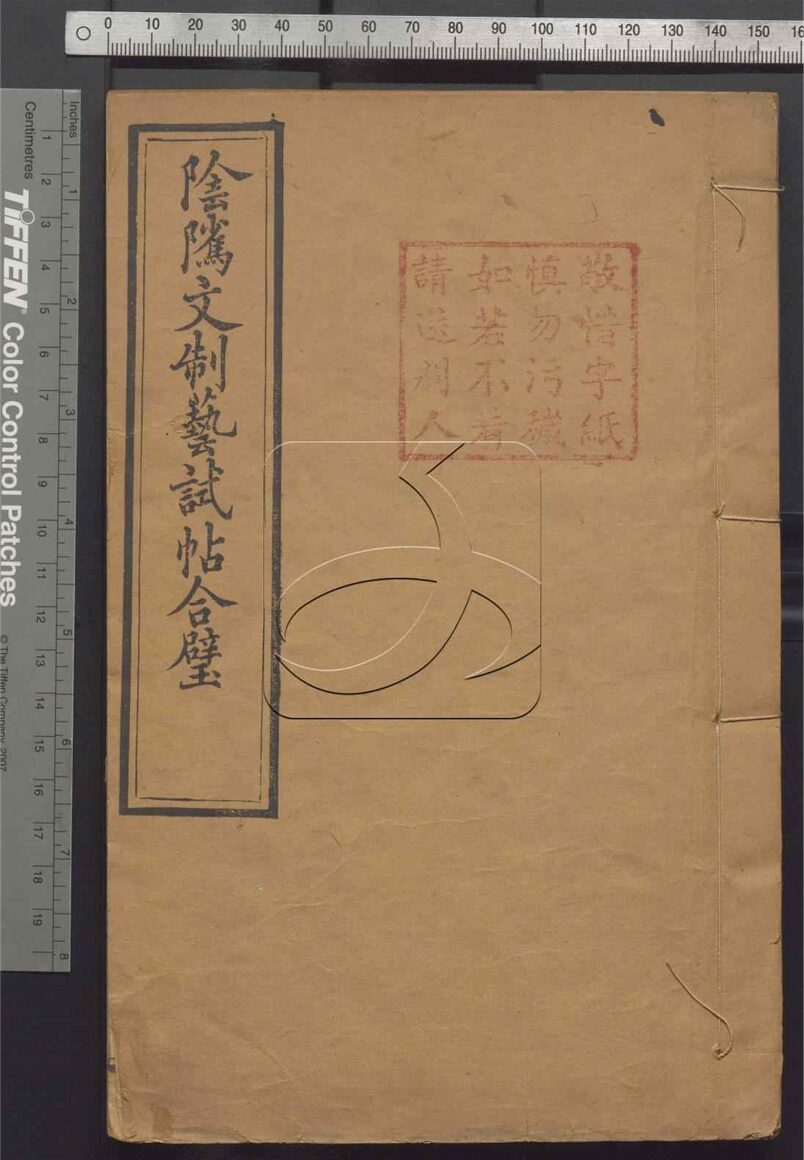 0 10 20 30 40 50 60 70 80 90 100 110 120 130 140 150 16
Inches
1 2 3 4 5 6 7 8
Centimetres
1 2 3 4 5 6 7 8 9 10 11 12 13 14 15 16 17 18 19
TIFFEN® Color Control Patches
© The Tiffen Company, 2007
敬惜字紙
慎勿污穢
如若不看
請送別人
陰隲文制藝試帖合璧